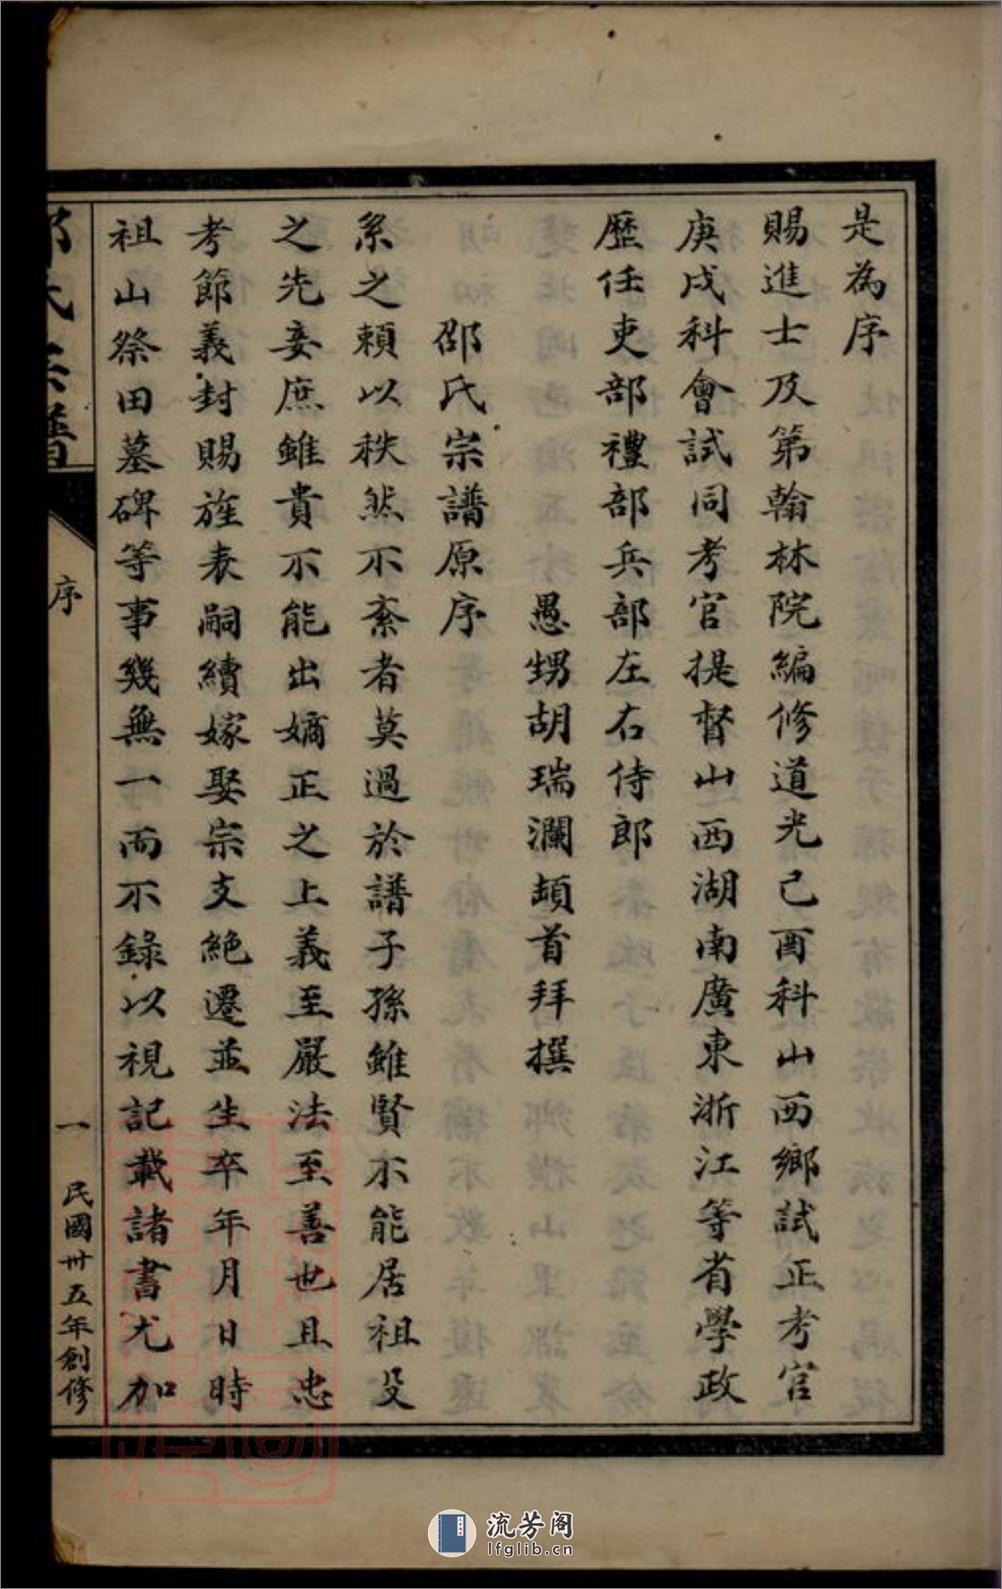 是為序
賜進士及第翰林院編修道光己酉科山西鄉試正考官
庚戌科會試同考官提督山西湖南廣東浙江等省學政
歷任吏部禮部兵部左右侍郎
愚甥胡瑞瀾頓首拜撰
邵氏宗譜原序
系之賴以秩然不紊者莫過於譜子孫雖賢不能居祖父
之先妾庶雖貴不能出嫡正之上義至嚴法至善也且忠
考節義封賜旌表嗣續嫁娶宗支絕遷並生卒年月日時
祖山祭田墓碑等事幾無一而不錄以視記載諸書尤加
序
一
民國卅五年創修
流芳阁
lfglib.cn